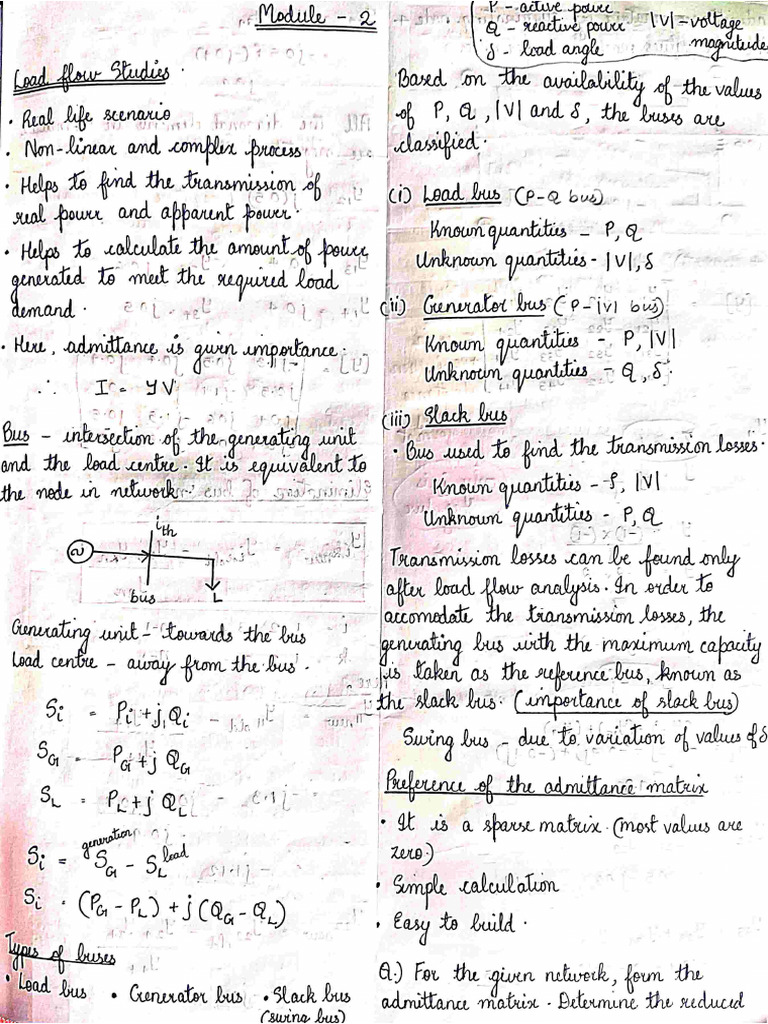 Module - 2
Load flow Studies.
• Real life scenario
• Non-linear and complex process
• Helps to find the transmission of
real power and apparent power.
• Helps to calculate the amount of power
generated to meet the required load
demand.
• Here, admittance is given importance.
∴ I = YV
Bus - intersection of the generating unit
and the load centre. It is equivalent to
the node in network.
ith
bus
L
Generating unit - towards the bus
Load centre - away from the bus.
Si = Pi + jQi
SG = PG + jQG
SL = PL + jQL
generation
Si = SG - SL load
Si = (PG - PL) + j(QG - QL)
Types of buses
• Load bus • Generator bus • Slack bus
(swing bus)
P - active power
Q - reactive power |V| - voltage
magnitude
δ - load angle
Based on the availability of the values
of P, Q, |V| and δ, the buses are
classified.
(i) Load bus (P-Q bus)
Known quantities - P, Q
Unknown quantities - |V|, δ
(ii) Generator bus (P-|V| bus)
Known quantities - P, |V|
Unknown quantities - Q, δ.
(iii) Slack bus
• Bus used to find the transmission losses.
Known quantities - δ, |V|
Unknown quantities - P, Q
Transmission losses can be found only
after load flow analysis. In order to
accomodate the transmission losses, the
generating bus with the maximum capacity
is taken as the reference bus, known as
the slack bus. (importance of slack bus)
Swing bus - due to variation of values of δ
Preference of the admittance matrix
• It is a sparse matrix. (most values are
zero.)
• Simple calculation
• Easy to build.
Q.) For the given network, form the
admittance matrix. Determine the reduced